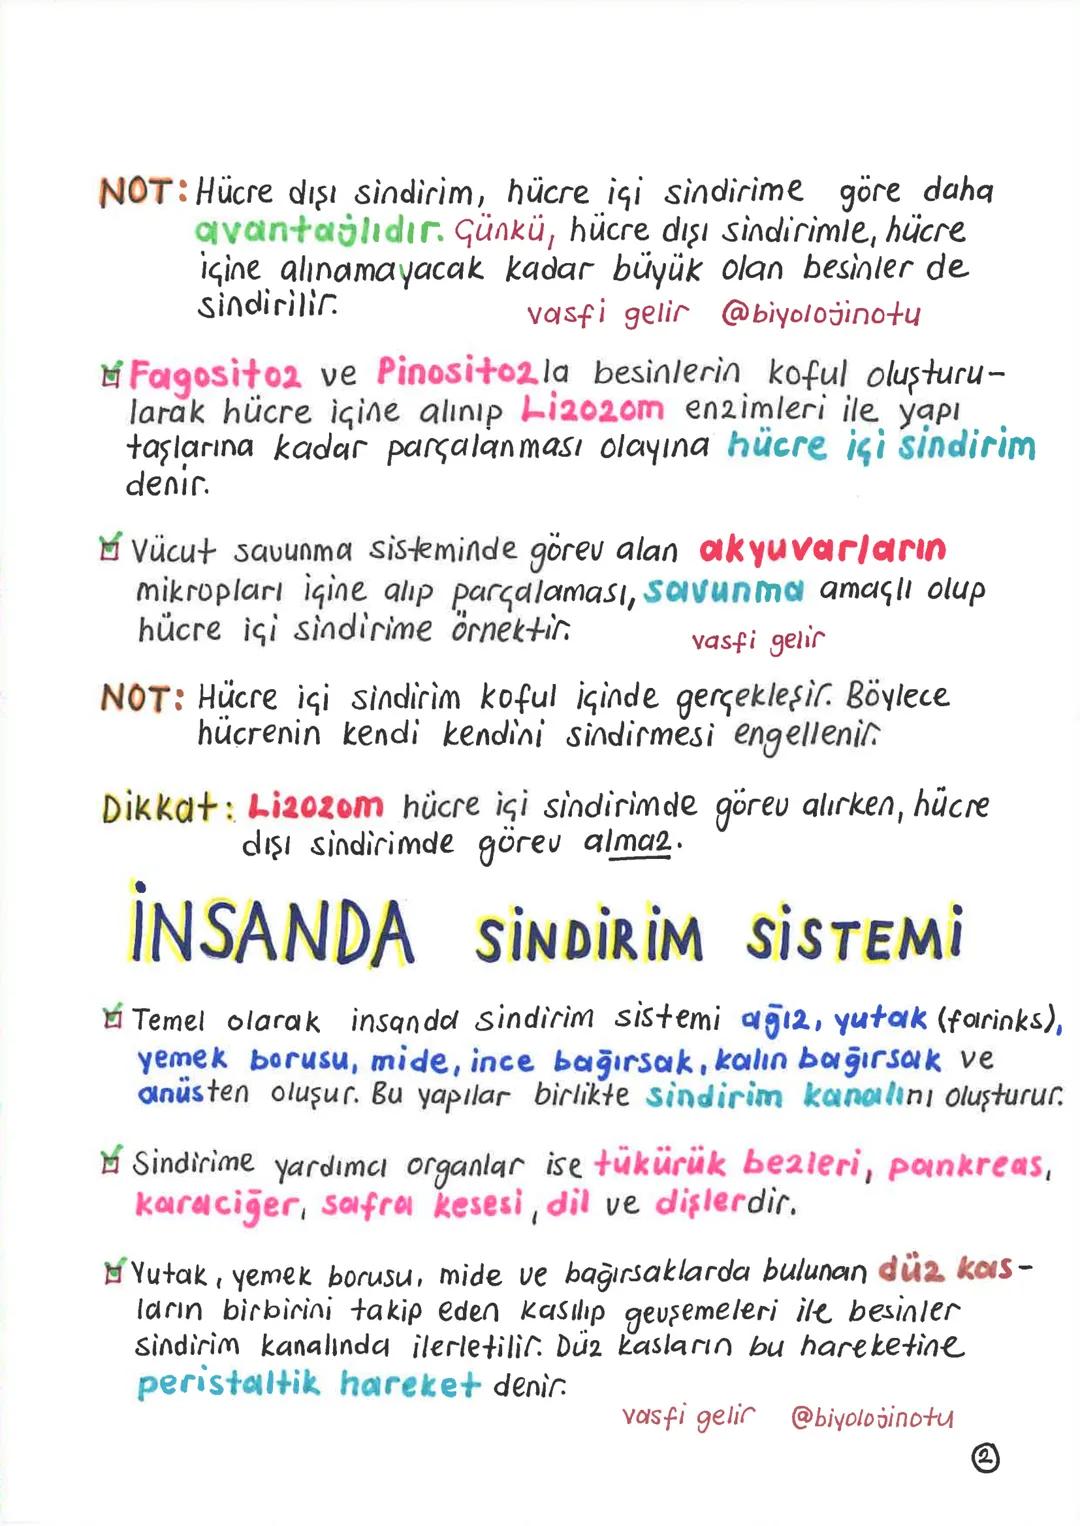 NOT: Hücre dışı sindirim, hücre içi sindirime göre daha
avantajlıdır. Çünkü, hücre dışı sindirimle, hücre
içine alınamayacak kadar büyük olan besinler de
sindirilir.
vasfi gelir @biyolojinotu
Fagositoz ve Pinositozla besinlerin koful oluşturu-
larak hücre içine alınıp Lizozom enzimleri ile yapı
taşlarına kadar parçalanması olayına hücre içi sindirim
denir.
Vücut savunma sisteminde görev alan akyuvarların
mikropları içine alıp parçalaması, savunma amaçlı olup
hücre içi sindirime örnektir.
vasfi gelir
NOT: Hücre içi sindirim koful içinde gerçekleşir. Böylece
hücrenin kendi kendini sindirmesi engellenir.
Dikkat: Lizozom hücre içi sindirimde görev alırken, hücre
dışı sindirimde görev almaz.
İNSANDA SİNDİRİM SİSTEMİ
Temel olarak insanda sindirim sistemi ağız, yutak (farinks),
yemek borusu, mide, ince bağırsak, kalın bağırsak ve
anüsten oluşur. Bu yapılar birlikte sindirim kanalını oluşturur.
Sindirime yardımcı organlar ise tükürük bezleri, pankreas,
karaciğer, safra kesesi, dil ve dişlerdir.
Yutak, yemek borusu, mide ve bağırsaklarda bulunan düz kas-
ların birbirini takip eden kasılıp gevşemeleri ile besinler
sindirim kanalında ilerletilir. Düz kasların bu hareketine
peristaltik hareket denir.
vasfi gelir @biyolojinotu
2